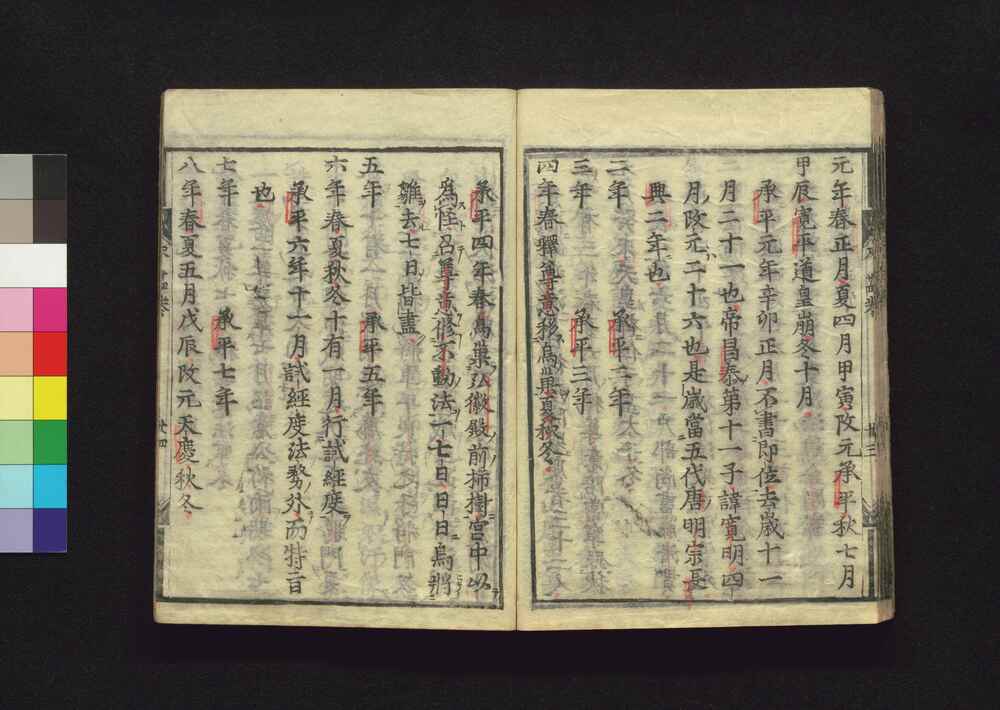 元年春正月夏四月甲寅改元承平秋七月
甲辰寛平道皇崩冬十月
承平元年辛卯正月不書即位去歳十一
月二十一也帝昌泰第十一子諱寛明四
月改元二十六也是歳當五代唐明宗長
興二年也
二年　承平二年
三年　承平三年
四年春釋尊意移烏巣夏秋冬
承平四年春烏巣弘徽殿前柿樹宮中以
為怪召尊意修不動法一七日日日烏將
雛去七日皆盡
五年　承平五年
六年春夏秋冬十有一月行試經度
承平六年十一月試經度法勢外而特言
也
七年　承平七年
八年春夏五月戊辰改元天慶秋冬
廿三
廿四